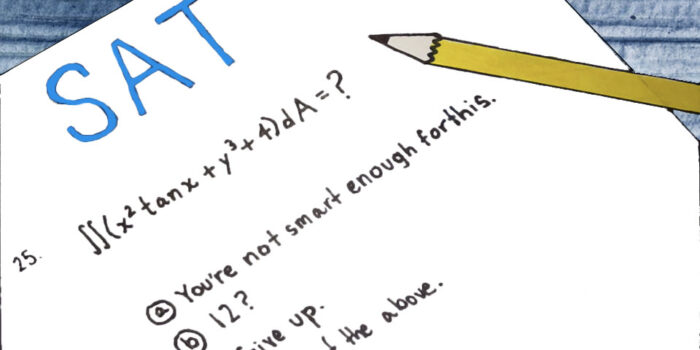 SAT
25. ∬(x² tanx + y³ + 4)dA = ?
ⓐ You're not smart enough for this.
ⓑ 12?
give up.
the above.